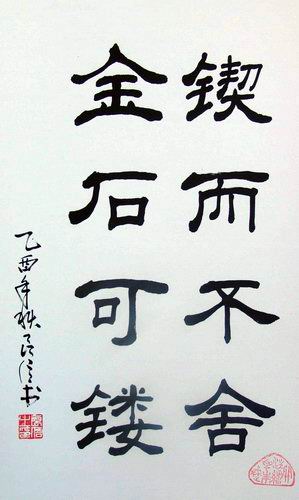 锲而不舍
金石可镂
乙酉年秋
书